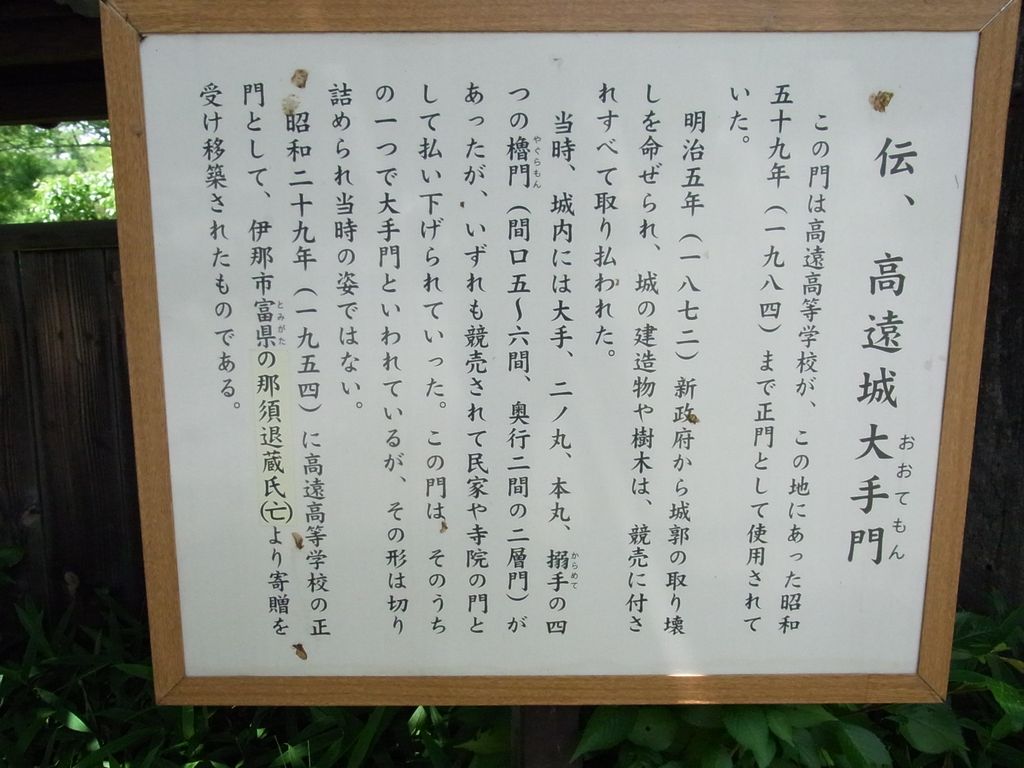 伝、高遠城大手門
おおてもん
この門は高遠高等学校が、この地にあった昭和
五十九年(一九八四)まで正門として使用されて
いた。
明治五年(一八七二)新政府から城郭の取り壊
しを命ぜられ、城の建造物や樹木は、競売に付さ
れすべて取り払われた。
当時、城内には大手、二ノ丸、本丸、搦手の四
からめて
つの櫓門(間口五〜六間、奥行二間の二層門)が
やぐらもん
あったが、いずれも競売されて民家や寺院の門と
して払い下げられていった。この門は、そのうち
の一つで大手門といわれているが、その形は切り
詰められ当時の姿ではない。
昭和二十九年(一九五四)に高遠高等学校の正
門として、伊那市富県の那須退蔵氏(亡)より寄贈を
とみがた
受け移築されたものである。